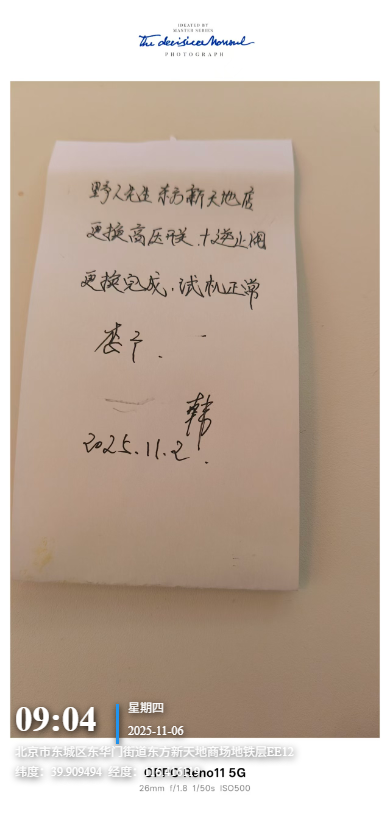 IDEATED BY
MASTER SERIES
The decisive Moment
PHOTOGRAPH
野人先生东方新天地店
更换高压开关.十逆止阀
更换完成.试机正常
韩
2025.11.2
09:04
星期四
2025-11-06
北京市东城区东华门街道东方新天地商场地铁层EE12
纬度：39.909494 经度：
OPPO Reno11 5G
26mm f/1.8 1/50s ISO500